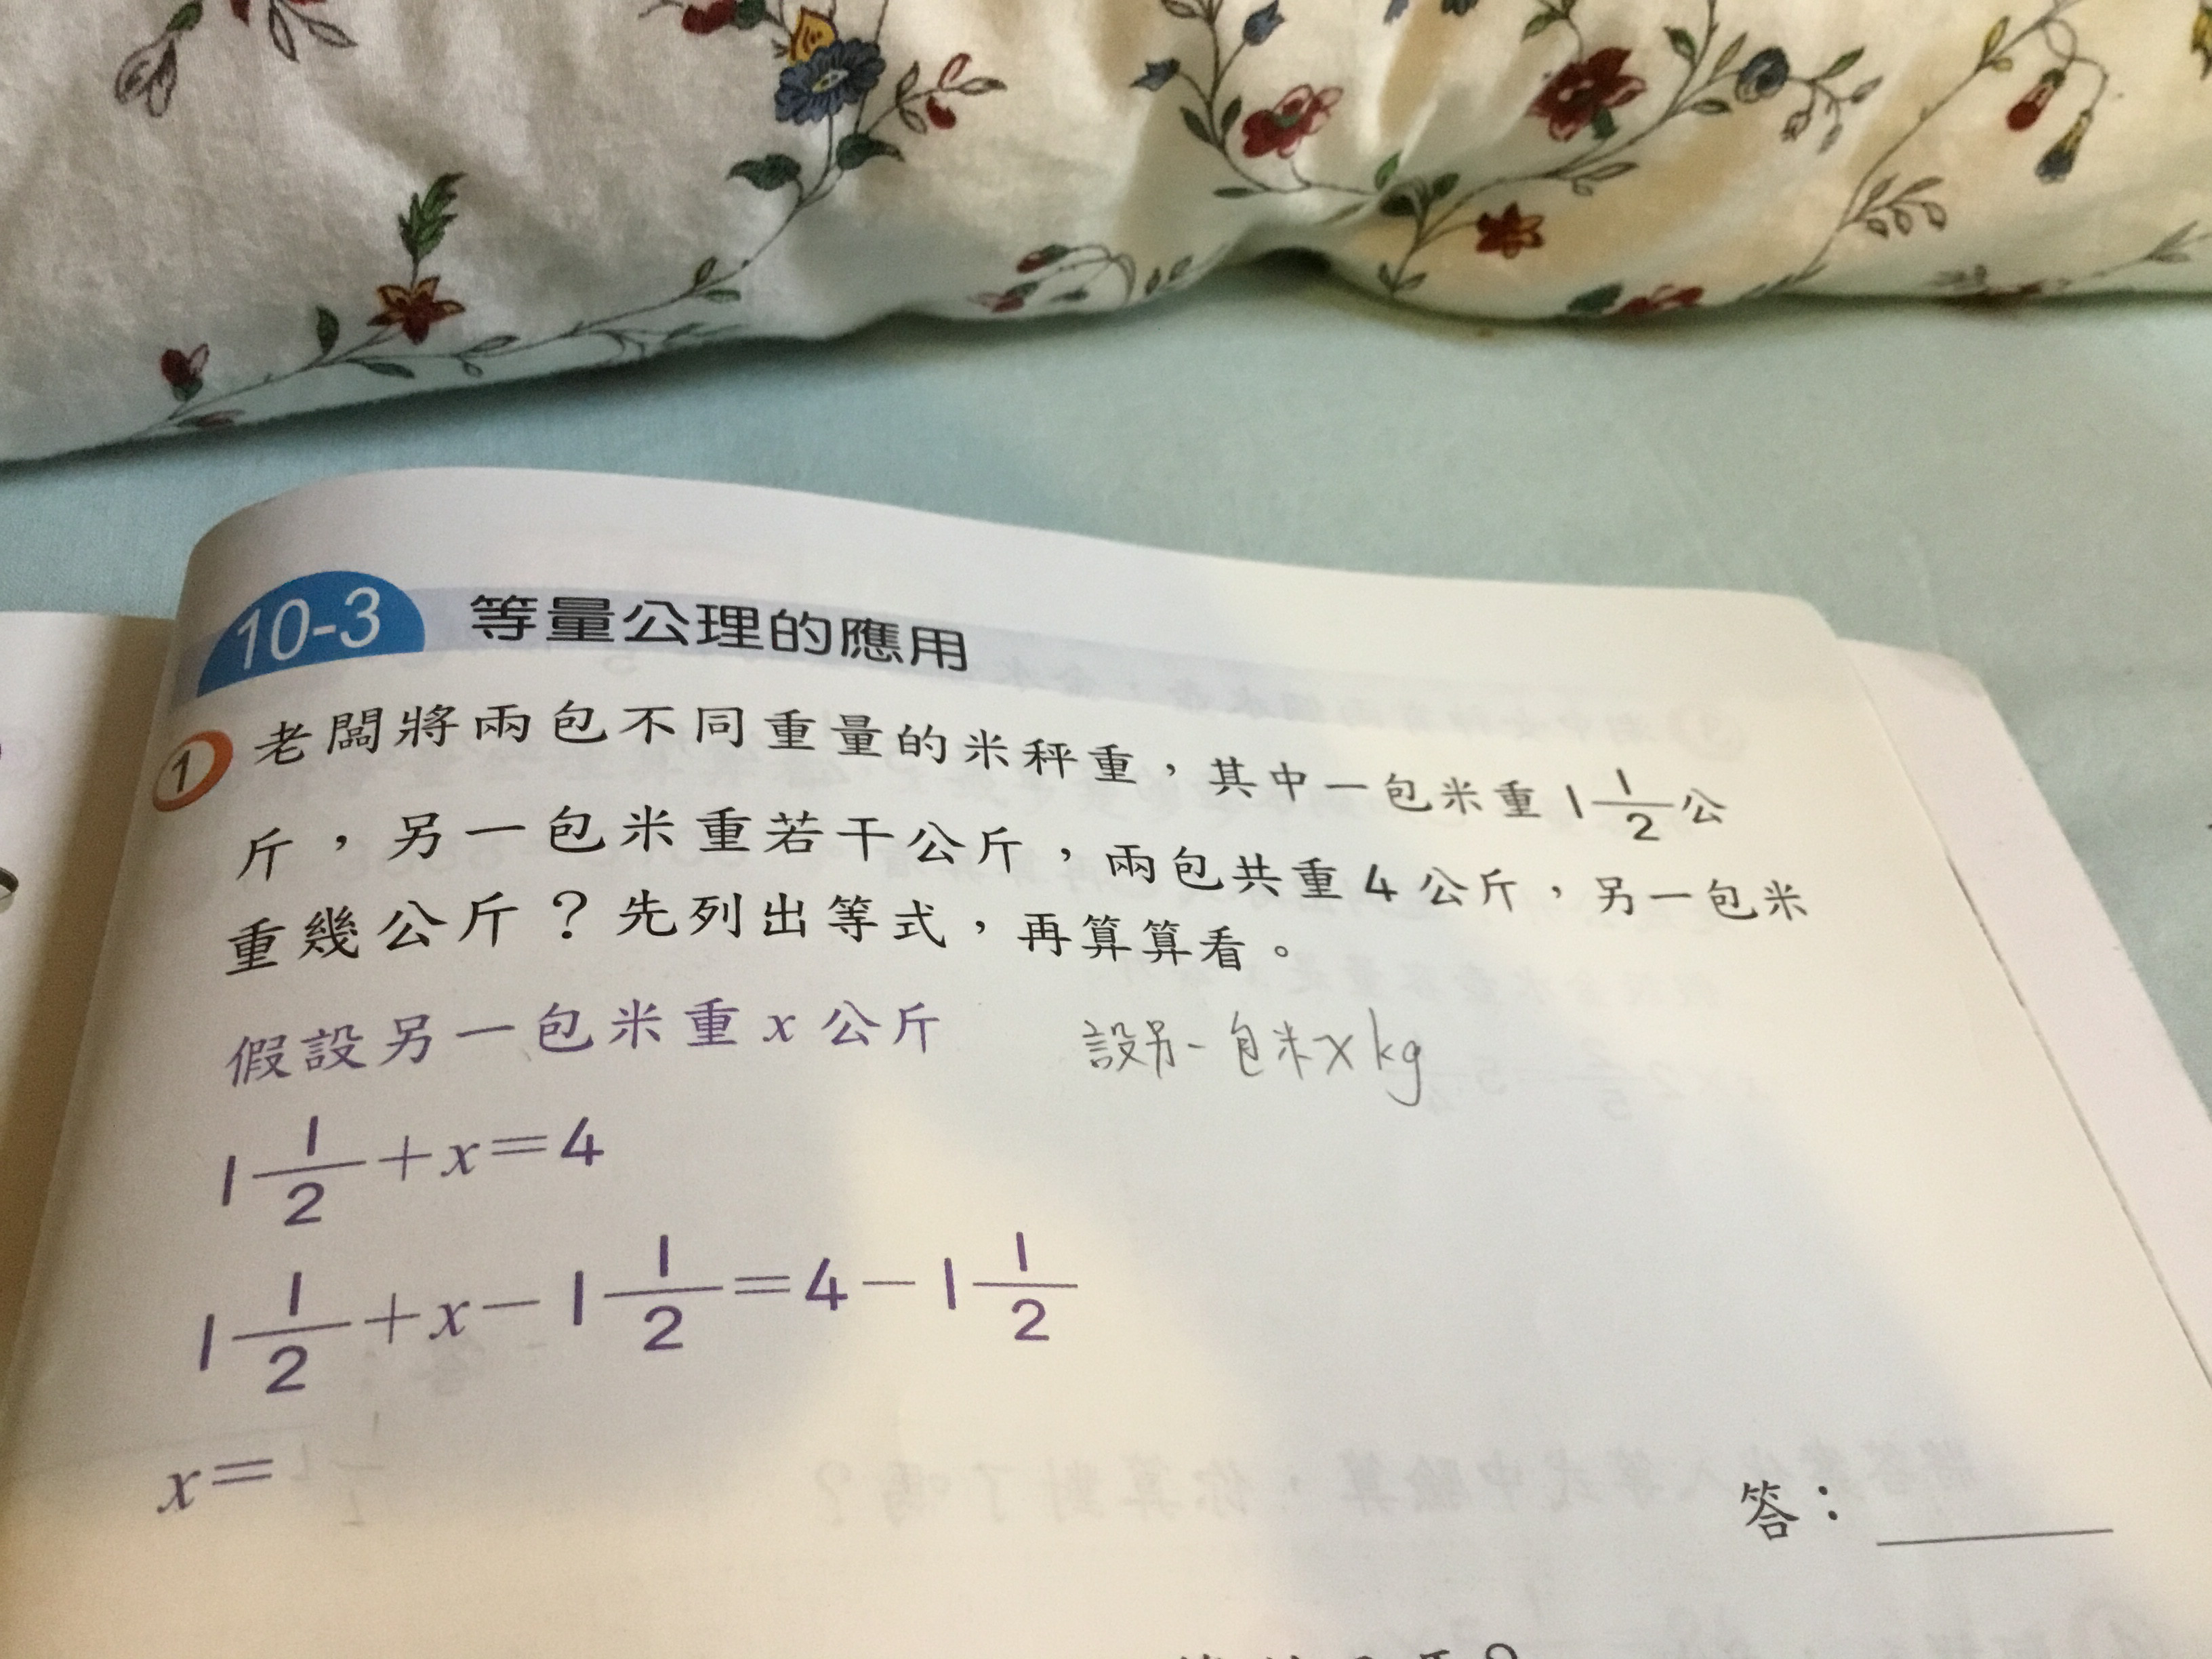 10-3 等量公理的應用
1 老闆將兩包不同重量的米秤重，其中一包米重 1 1/2 公
斤，另一包米重若干公斤，兩包共重 4 公斤，另一包米
重幾公斤？先列出等式，再算算看。
假設另一包米重 x 公斤 設另一包米 x kg
1 1/2 + x = 4
1 1/2 + x - 1 1/2 = 4 - 1 1/2
x =
答：